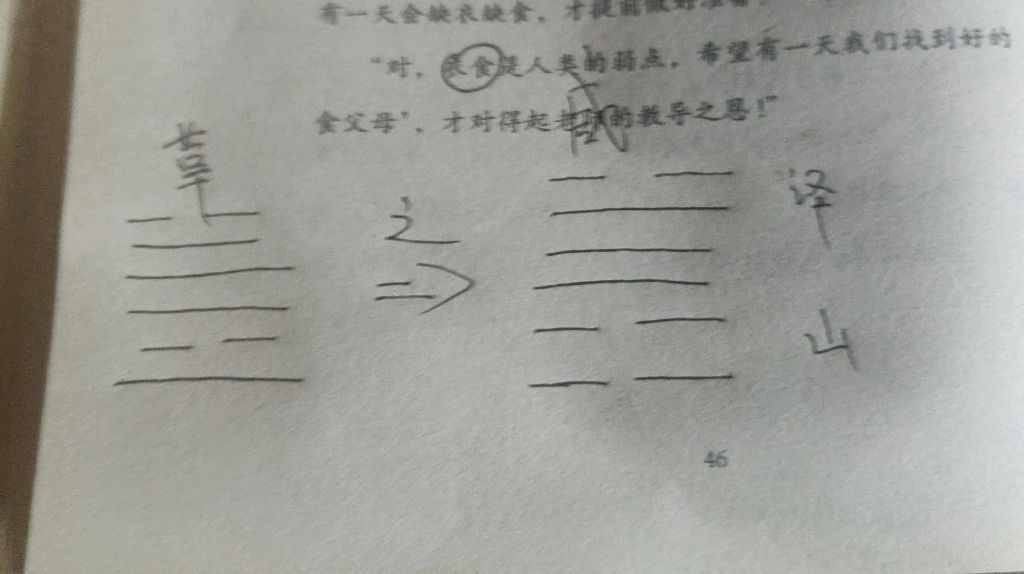 有一天会缺衣缺食，才提前做好准备！
“对，衣食是人类的弱点，希望有一天我们找到好的
食父母’，才对得起老师的教导之恩！”
革
之
咸
泽
山
46